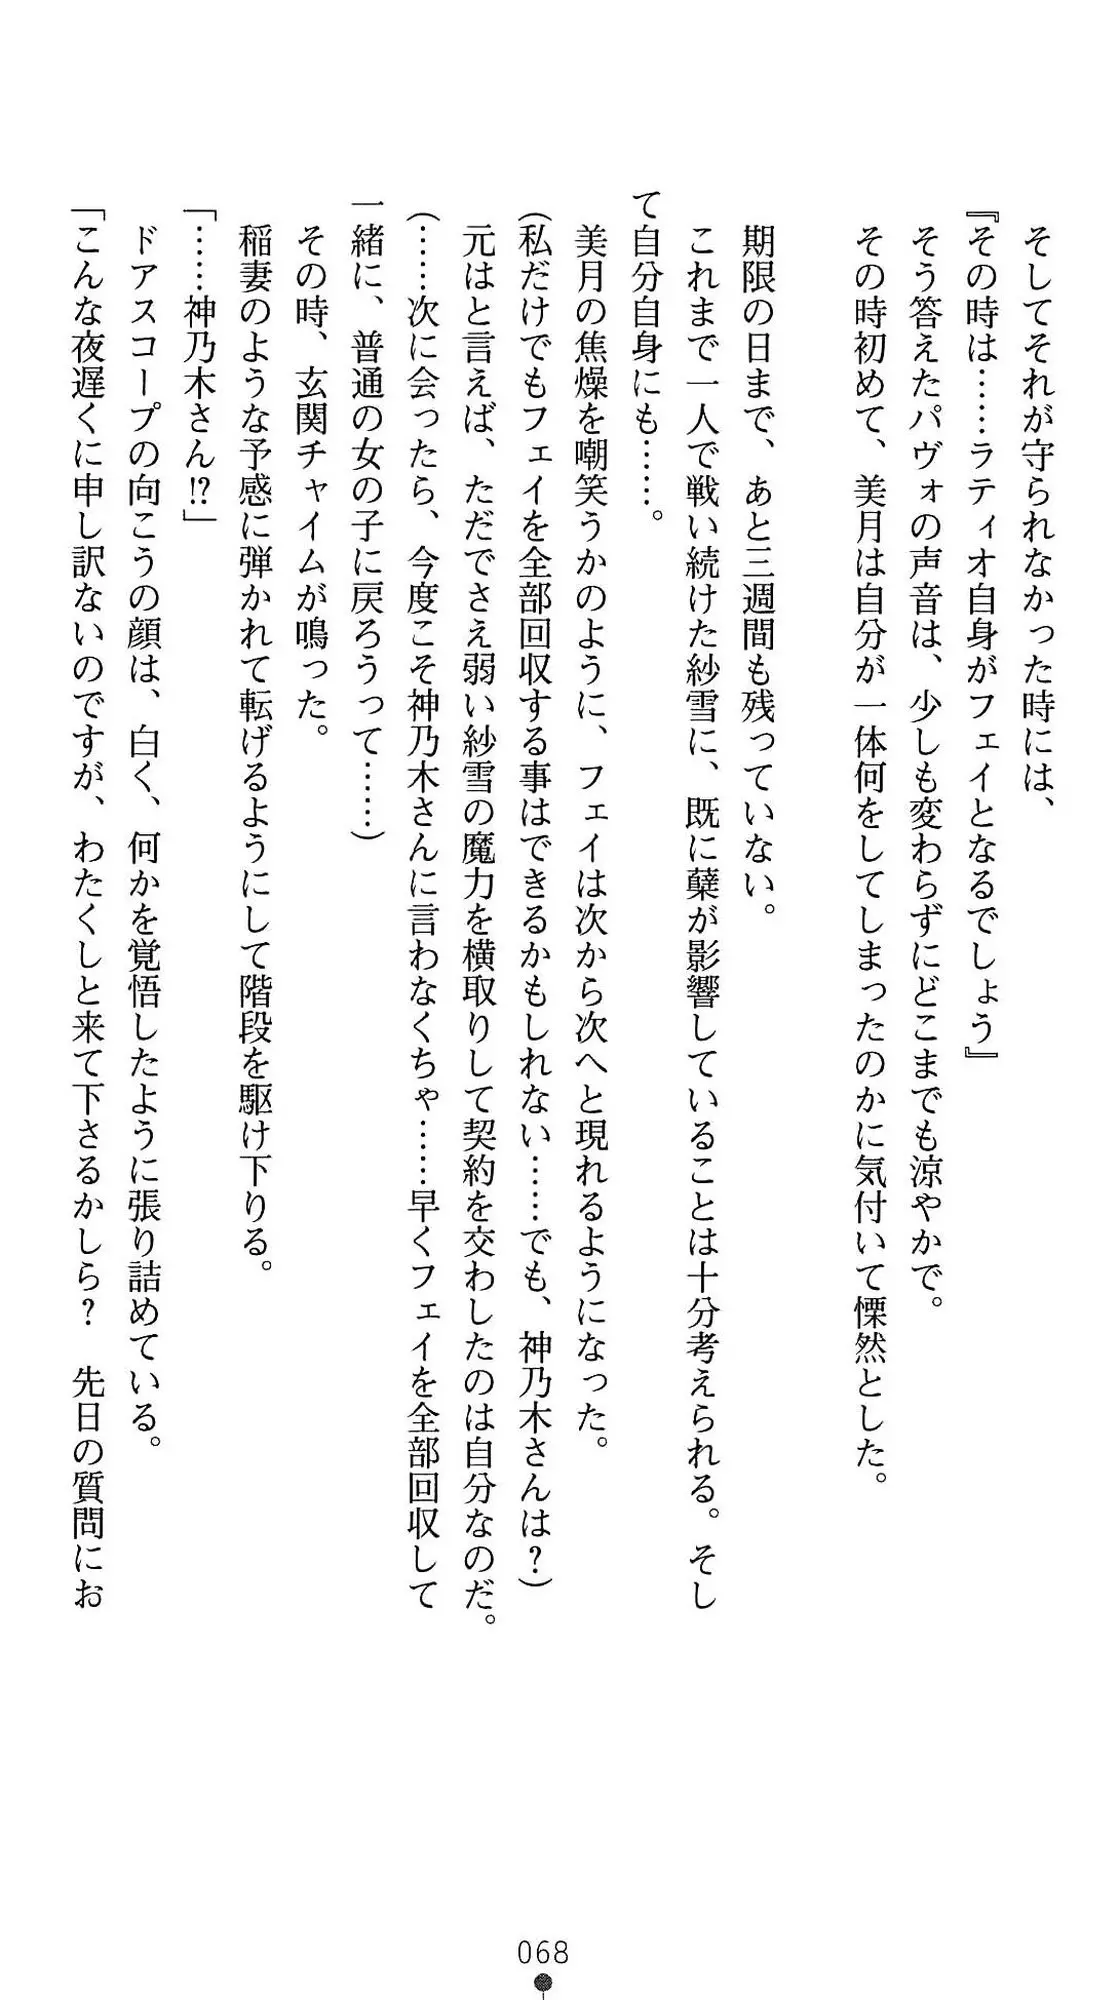 そしてそれが守られなかった時には、
『その時は……ラティオ自身がフェイとなるでしょう』
そう答えたパヴォの声音は、少しも変わらずにどこまでも涼やかで。
その時初めて、美月は自分が一体何をしてしまったのかに気付いて慄然とした。
期限の日まで、あと三週間も残っていない。
これまで一人で戦い続けた紗雪に、既に蘖が影響していることは十分考えられる。そし
て自分自身にも……。
美月の焦燥を嘲笑うかのように、フェイは次から次へと現れるようになった。
(私だけでもフェイを全部回収する事はできるかもしれない……でも、神乃木さんは？)
元はと言えば、ただでさえ弱い紗雪の魔力を横取りして契約を交わしたのは自分なのだ。
(……次に会ったら、今度こそ神乃木さんに言わなくちゃ……早くフェイを全部回収して
一緒に、普通の女の子に戻ろうって……)
その時、玄関チャイムが鳴った。
稲妻のような予感に弾かれて転げるようにして階段を駆け下りる。
「……神乃木さん!?」
ドアスコープの向こうの顔は、白く、何かを覚悟したように張り詰めている。
「こんな夜遅くに申し訳ないのですが、わたくしと来て下さるかしら？　先日の質問にお
068